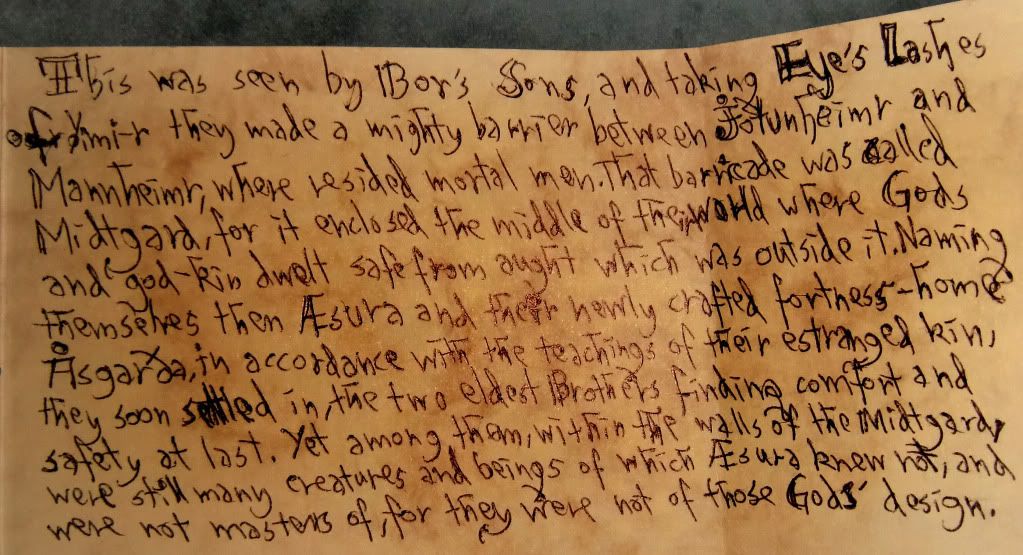 This was seen by Bor's Sons, and taking Eye's Lashes
of Ymi-r they made a mighty barrier between Jötunheimr and
Mannheimr, where resided mortal men. That barricade was called
Midtgard, for it enclosed the middle of their world where Gods
and god-kin dwelt safe from aught which was outside it. Naming
themselves then Æsura and their newly crafted fortness-home
Åsgarða, in accordance with the teachings of their estranged kin,
they soon settled in, the two eldest Brothers finding comfort and
safety at last. Yet among them, within the walls of the Midtgard,
were still many creatures and beings of which Æsura knew not, and
were not masters of, for they were not of those Gods' design.